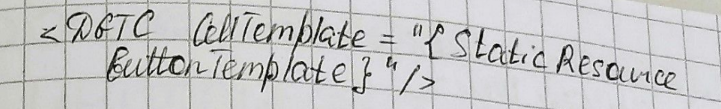 <DGTC CellTemplate = "{ Static Resource
ButtonTemplate } "/>